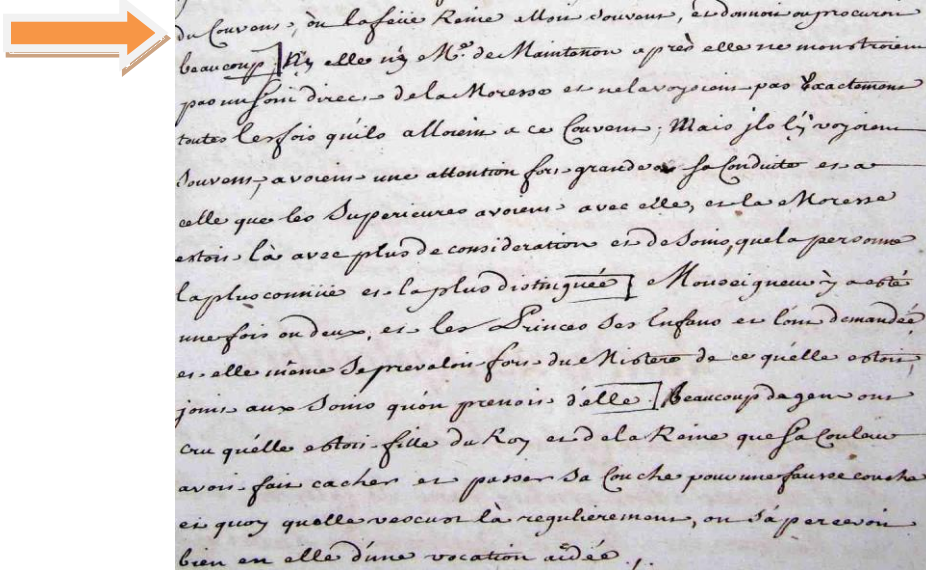 du Couvens, ou la feüe Reine alloit souvent, et donnoit ou procuroit
beaucoup. Ny elle ny Me. de Maintenon apres elle ne monstroient
pas un soin direct de la Moresse et ne la voyoient pas Exactement
toutes les fois qu'ils alloient a ce Couvent; Mais jls l'y voyoient
souvent, avoient une attention fort grande a sa Conduite et a
celle que les Superieures avoient avec elle, et la Moresse
estoit là avec plus de consideration et de soins, que la personne
la plus connüe et la plus distinguée. Monseigneur y a esté
une fois ou deux, et les Princes ses Enfans et l'ont demandée
et elle même se prevaloit fort du Mistere de ce qu'elle estoit,
joint aux soins qu'on prenoit d'elle. Beaucoup de gens ont
cru qu'elle estoit fille du Roy et de la Reine que sa Couleur
avoit fait cacher et passer sa Couche pour une fausse couche
et quoy quelle vescust là regulierement, on s'apercevoit
bien en elle d'une vocation aidée.